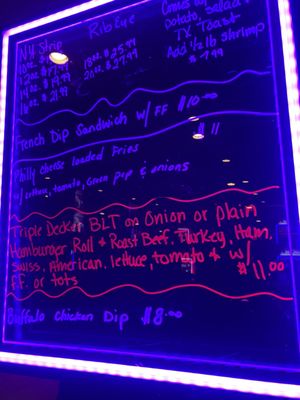 NY Strip
RibEye
Comes w/
Potato, Salad &
TX Toast
Add 1/2 lb shrimp
$ 7.99
18oz. $25.99
20oz. $27.99
French Dip Sandwich w/ FF $10.00
Philly cheese loaded Fries $11
w/ lettuce, tomato, Green pep & onions
Triple Decker BLT on Onion or plain
Hamburger Roll & Roast Beef, Turkey, Ham,
Swiss, American, lettuce, tomato & w/
FF or tots $11.00
Buffalo Chicken Dip $8.00